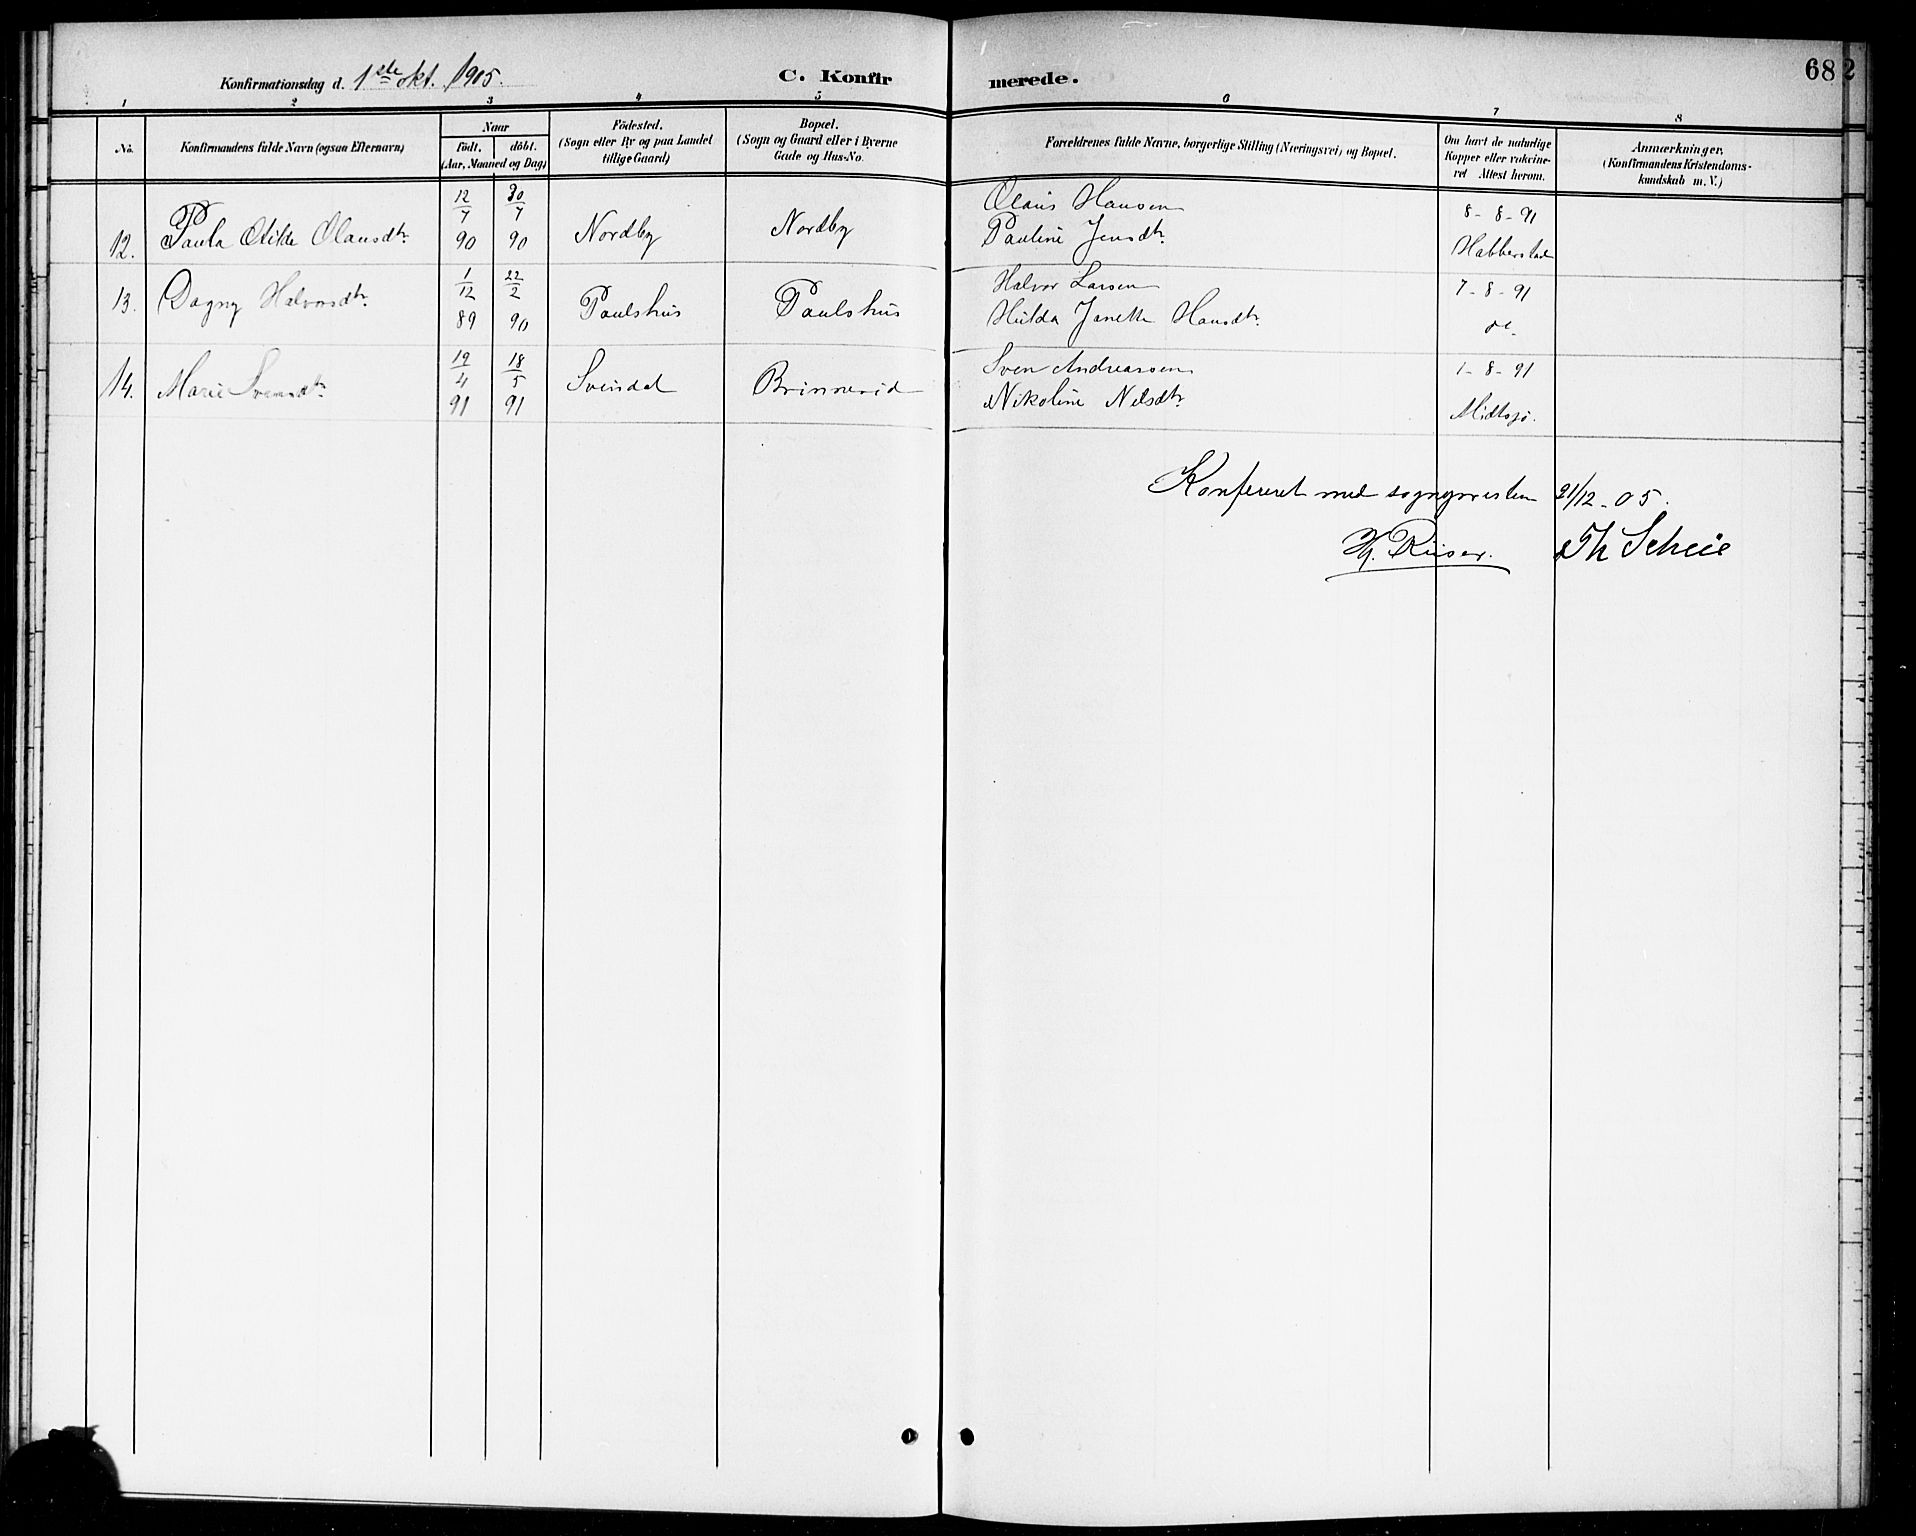 Konfirmationsdag d. 1ste okt. 1905.
C. Konfirmerede.
68
2
1 2 3 4 5 6 7 8
No.
Konfirmandens fulde Navn (ogsaa Efternavn)
Naar
födt. döbt.
(Aar, Maaned og Dag)
Födested.
(Sogn eller By og paa Landet
tillige Gaard)
Bopæl.
(Sogn og Gaard eller i Byerne
Gade og Hus-No.
Forældrenes fulde Navne, borgerlige Stilling (Næringsvei) og Bopæl.
Om havt de naturlige
Kopper eller vakcine-
ret Attest herom.
Anmærkninger,
(Konfirmandens Kristendoms-
kundskab m. V.)
12/7 30/7 Olaus Hansen 8-8-91
12. Paula Otilde Olausdtr. 90 90 Nordby Nordby Pauline Jensdtr. Habberstad
1/12 22/2 Halvor Larsen 7-8-91
13. Dagny Halvorsdtr. 89 90 Paulshus Paulshus Hilda Janette Hansdtr. do.
19/4 18/5 Sven Andreassen 1-8-91
14. Marie Svensdtr. 91 91 Svindal Brinnerid Nikoline Nilsdtr. Midtsjö.
Konfereret med sogneprestens 21/12-05.
Riiser. Th Scheie